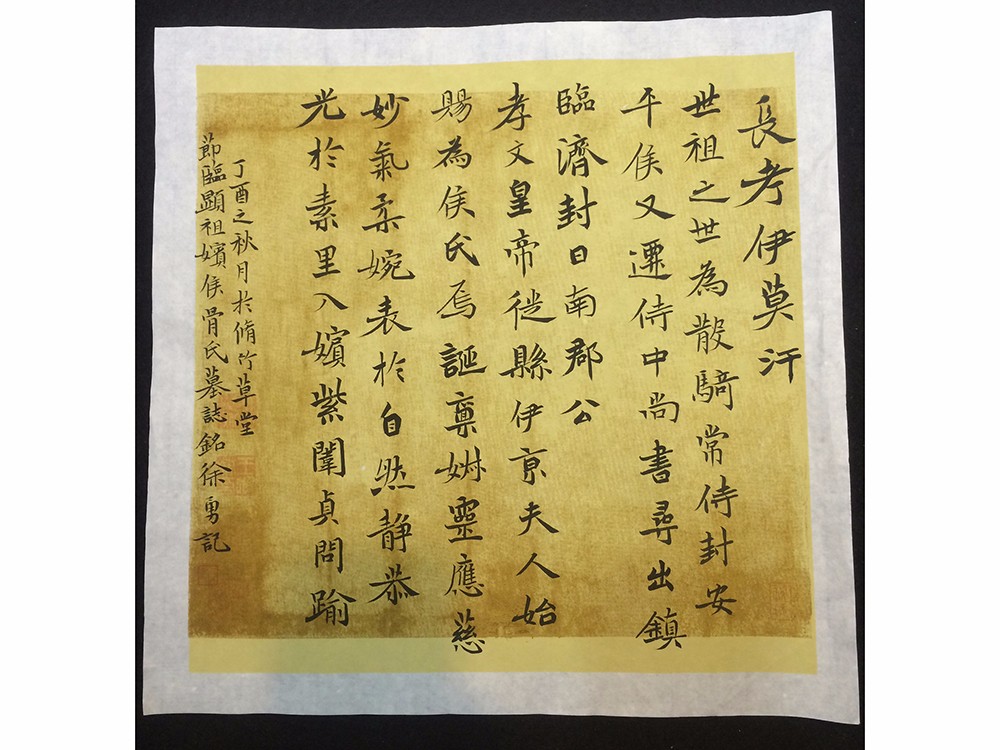 長考伊莫汗
世祖之世為散騎常侍封安
平侯又遷侍中尚書尋出鎮
臨濟封日南郡公
孝文皇帝徙縣伊京夫人始
賜為侯氏焉誕稟姘靈應慈
妙氣柔婉表於自然静恭
光於素里入嬪紫闈貞問踰
丁酉之秋月於脩竹草堂
節臨顯祖嬪侯骨氏墓誌銘徐勇記